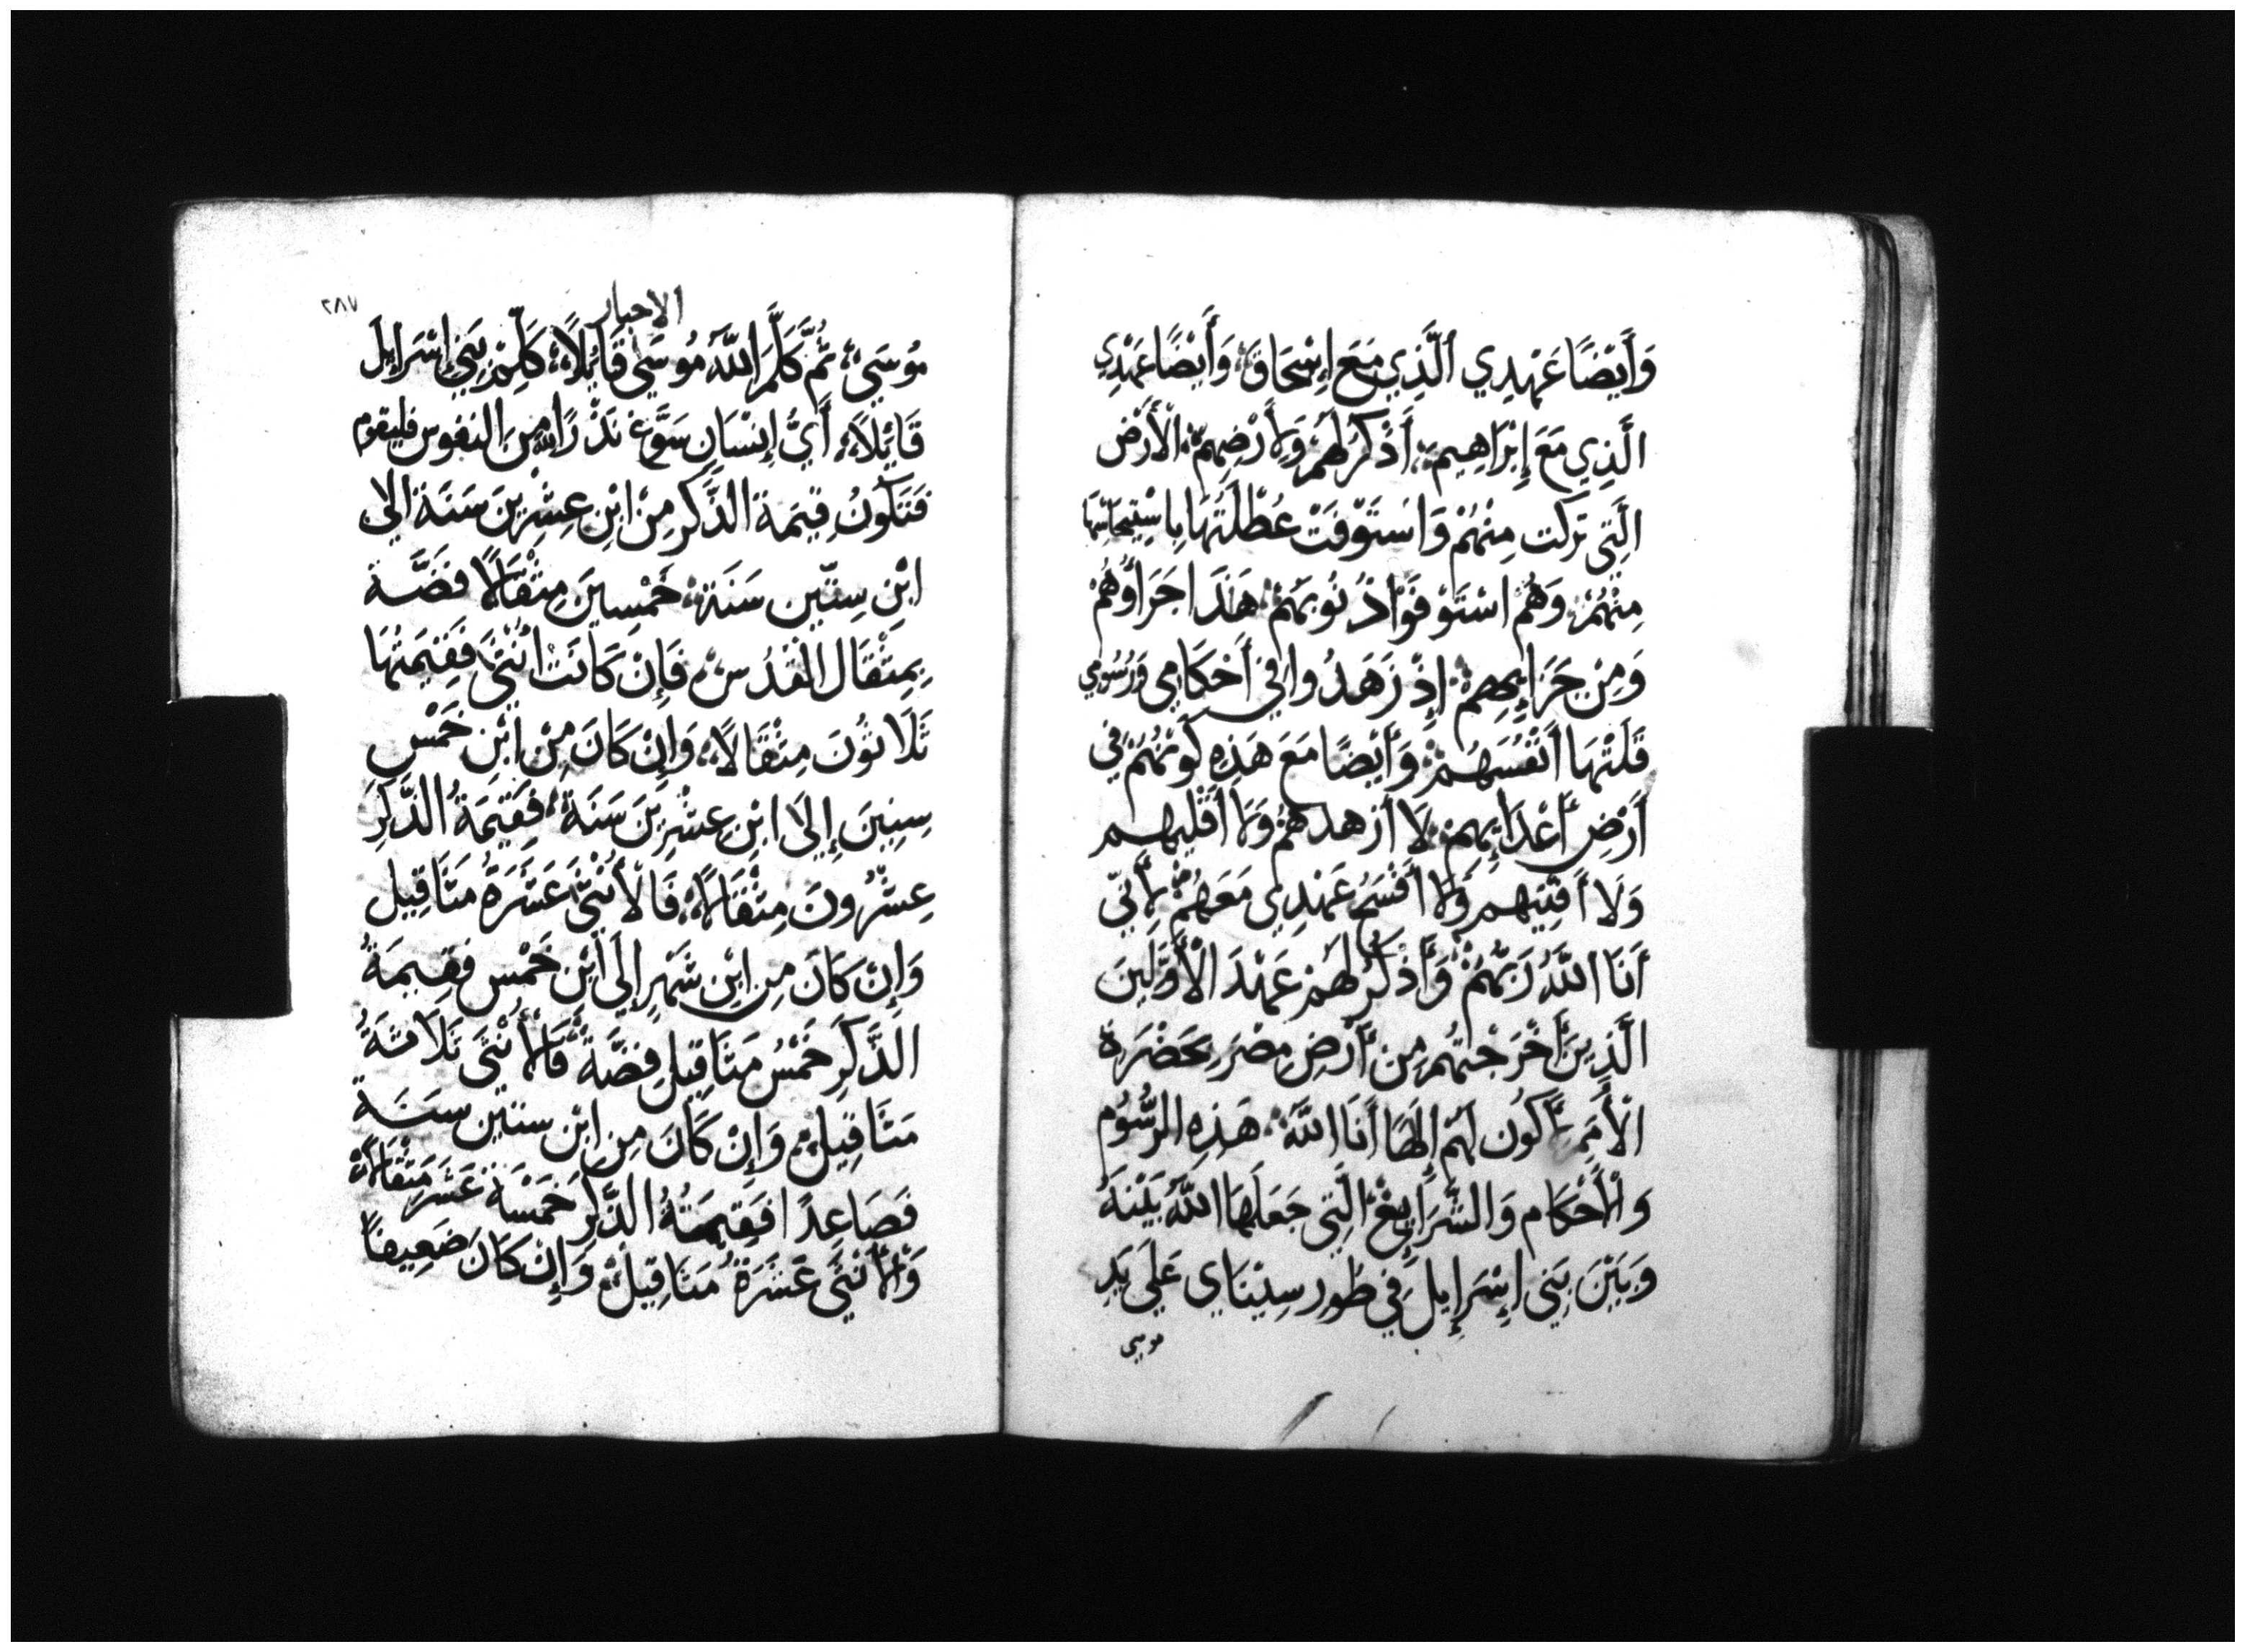 وَأَيْضًا عَهْدِي ٱلَّذِي مَعَ إِسْحَاقَ، وَأَيْضًا عَهْدِي
الَّذِي مَعَ إِبْرَاهِيم، أَذْكُرُ لَهُم وَلِأَرْضِهِمْ، الْأَرْض
الَّتِي تركت مِنْهُمْ وَاسْتَوْفَتْ عُطْلَتُهَا
مِنْهُمْ، وَهُم اسْتَوْفَوْا ذُنُوبَهُمْ، هَذَا جَزَاؤُهُمْ
وَمِنْ جَزَايِهِمْ، إِذْ زَهَدُوا فِي أَحْكَامِي وَرُسُومِي
قَلَتْهَا أَنْفُسُهُمْ، وَأَيْضًا مَعَ هَذِهِ كَوْنُهُمْ فِي
أَرْضِ أَعْدَائِهِمْ، لَا أزهدهُمْ وَلَا أَقْلِيهِم
وَلَا أَفْنِيهِم وَلَا أَفْسَخُ عَهْدِي مَعَهُمْ، لِأَنِّي
أَنَا اللَّهُ رَبُّهُمْ، وَأَذْكُرُ لَهُمْ عَهْدَ الْأَوَّلِينَ
الَّذِينَ أَخْرَجْتُهُم مِن أَرْضِ مِصْرَ بِحَضْرَة
الْأُمَمِ لِأَكُون لَهُمْ إِلَهًا أَنَا اللَّهُ، هَذِهِ الرُّسُوُم
وَالْأَحْكَام وَالشَّرَايِعُ، الَّتِي جَعَلَهَا اللَّهُ بَيْنَهُ
وَبَيْنَ بَنِي إِسْرَإِيلَ فِي طُورِ سِيْنَاي عَلَى يَدِ
موسى
٢٨٧
الاحبار
مُوسَى، ثُمَّ كَلَّمَ اللَّهُ مُوسَى قَائِلًا، كَلِّمْ بَنِي إِسْرَإِيل
قَائِلًا، أَيُّ إِنْسَانٍ سَوَّغ نَذْرًا لله مِنَ النفوس فليقوم
فَتَكُونُ قِيْمَة الذَّكَرِ مِنْ ابْنِ عِشْرِينَ سَنَة الى
ابْنِ سِتِّين سَنَة، خَمْسِينَ مِثْقَالًا فضَّة
بِمِثْقَالِ الْقُدُس، فَإِنْ كَانَتْ أُنْثَى فَقِيْمَتُهَا
ثَلَاثُونَ مِثْقَالًا، وَإِنْ كَانَ مِنْ ابْنِ خَمْسِ
سِنِينَ إِلَى ابْنِ عِشْرِينَ سَنَة، فَقِيمَةُ الذَّكَرِ
عِشْرُونَ مِثْقَالًا، فَالْأُنْثَى عَشَرَةُ مَثَاقِيل
وَإِنْ كَانَ مِن ابْنِ شَهْرٍ إِلَى ابْنِ خَمْسٍ فَقِيمَةُ
الذَّكَرِ خَمْسُ مَثَاقِيل فِضَّة، فَالْأُنْثَى ثَلَاثَةُ
مَثَاقِيل، وَإِنْ كَانَ مِن ابْن ستين سنة
فَصَاعِدًا فَقِيمَتُهُ الذَّكَرِ خَمْسَة عَشَر مِثْقَالًا
وَالْأُنْثَى عَشَرَةُ مَثَاقِيل، وَإِنْ كَانَ ضَعِيفًا